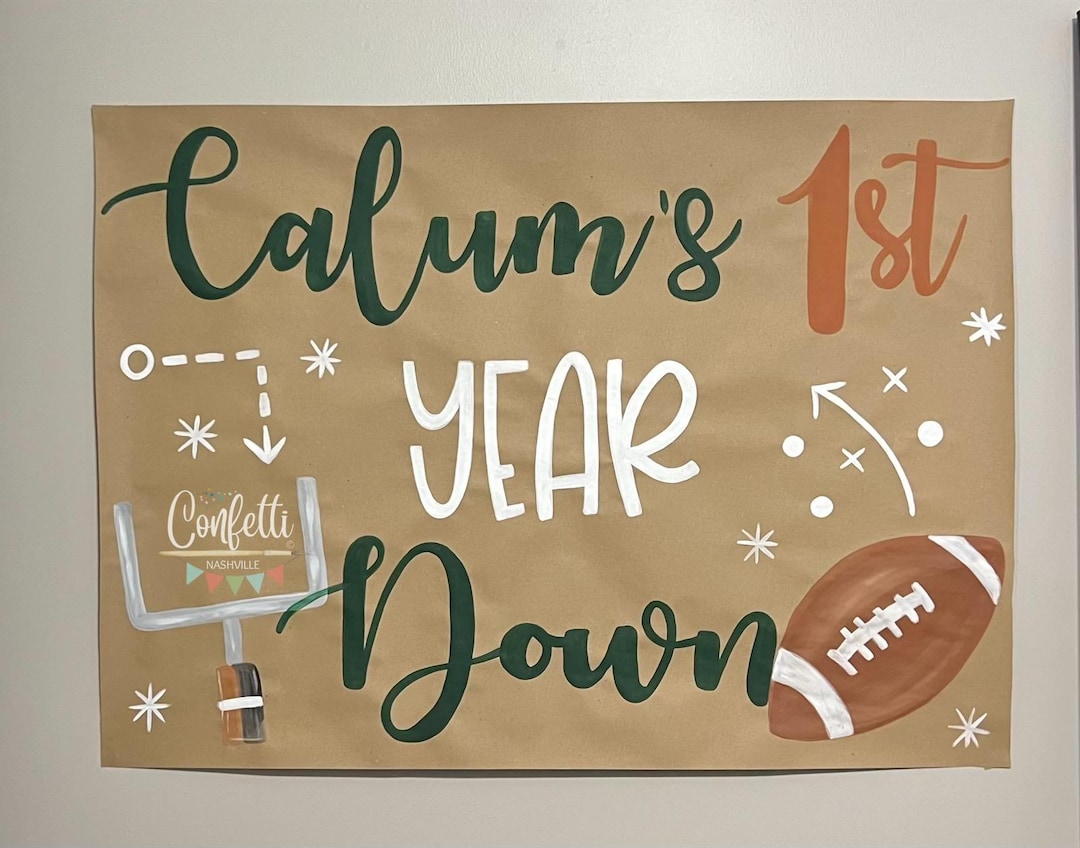 Calum's 1st
YEAR
Confetti
©
NASHVILLE
Down